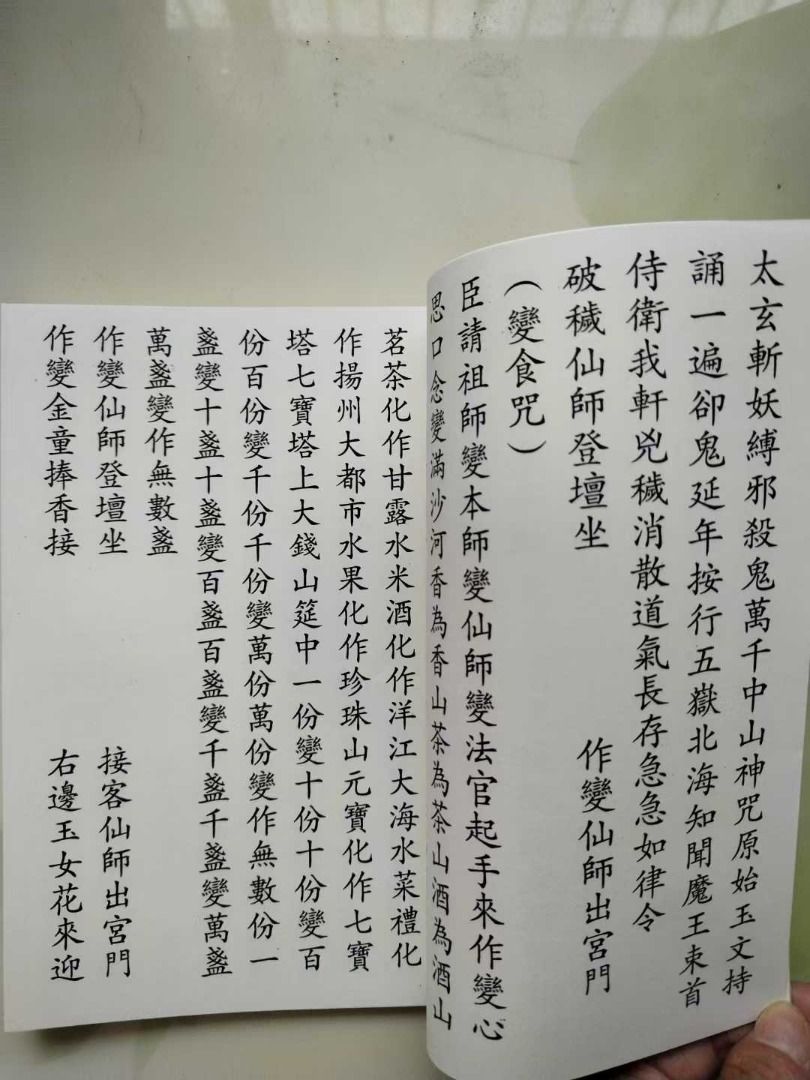 太玄斬妖縛邪殺鬼萬千中山神咒原始玉文持
誦一遍卻鬼延年按行五嶽北海知聞魔王束首
侍衛我軒兇穢消散道氣長存急急如律令
破穢仙師登壇坐 作變仙師出宮門
（變食咒）
臣請祖師變本師變仙師變法官起手來作變心
思口念變滿沙河香為香山茶為茶山酒為酒山
茗茶化作甘露水米酒化作洋江大海水菜禮化
作揚州大都市水果化作珍珠山元寶化作七寶
塔七寶塔上大錢山筵中一份變十份十份變百
份百份變千份千份變萬份萬份變作無數份一
盞變十盞十盞變百盞百盞變千盞千盞變萬盞
萬盞變作無數盞
作變仙師登壇坐 接客仙師出宮門
作變金童捧香接 右邊玉女花來迎